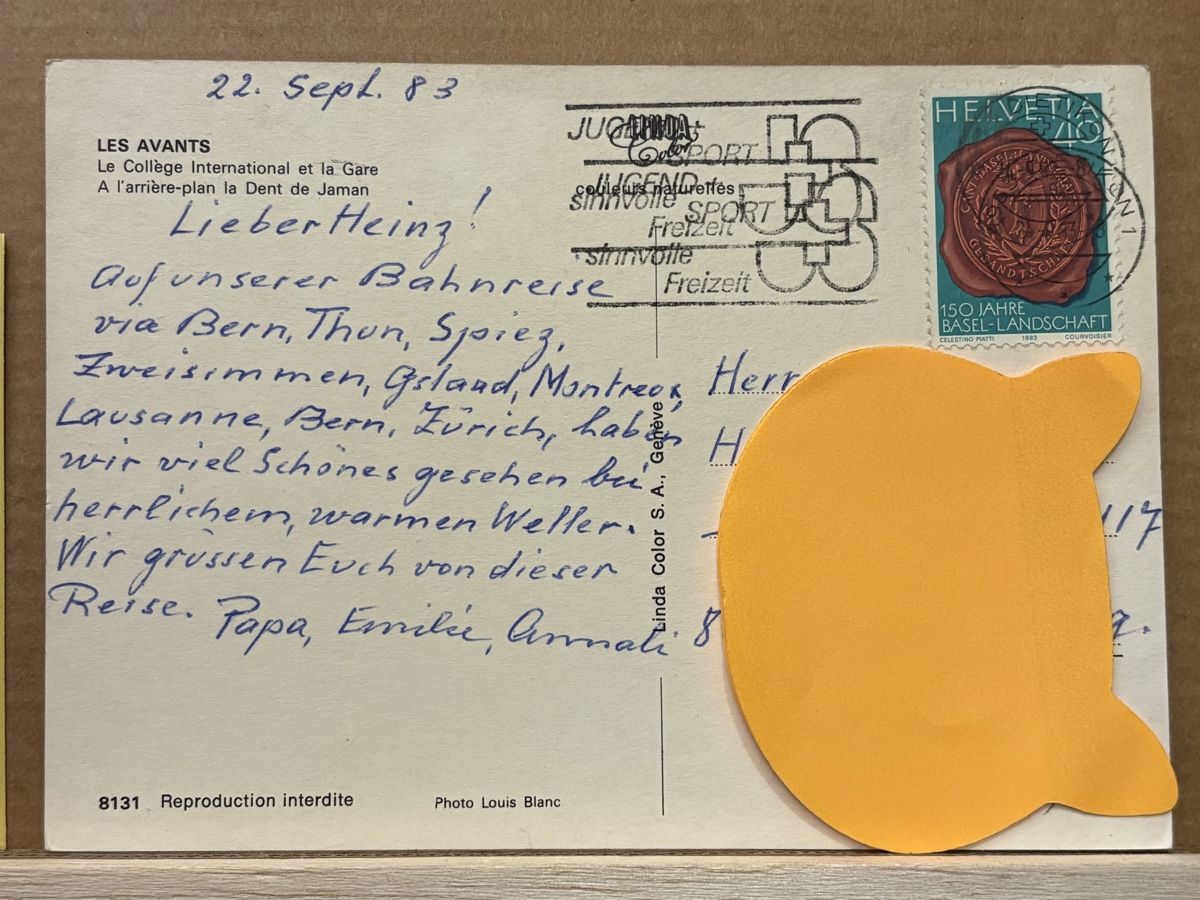 22. Sept. 83
LES AVANTS
Le Collège International et la Gare
A l'arrière-plan la Dent de Jaman
Lieber Heinz!
Auf unserer Bahnreise
via Bern, Thun, Spiez,
Zweisimmen, Gstaad, Montreux,
Lausanne, Bern, Zürich, haben
wir viel Schönes gesehen bei
herrlichem, warmen Wetter.
Wir grüssen Euch von dieser
Reise. Papa, Emilie, Annali
8131 Reproduction interdite
Photo Louis Blanc
Linda Color S. A., Genève
LINDA
Color
couleurs naturelles
JUGEND +
SPORT
JUGEND +
sinnvolle
SPORT
Freizeit
sinnvolle
Freizeit
HELVETIA
40
GESANDTSCHAFT
150 JAHRE
BASEL-LANDSCHAFT
CELESTINO PIATTI 1983 COURVOISIER
Herr
H
117
8
g.